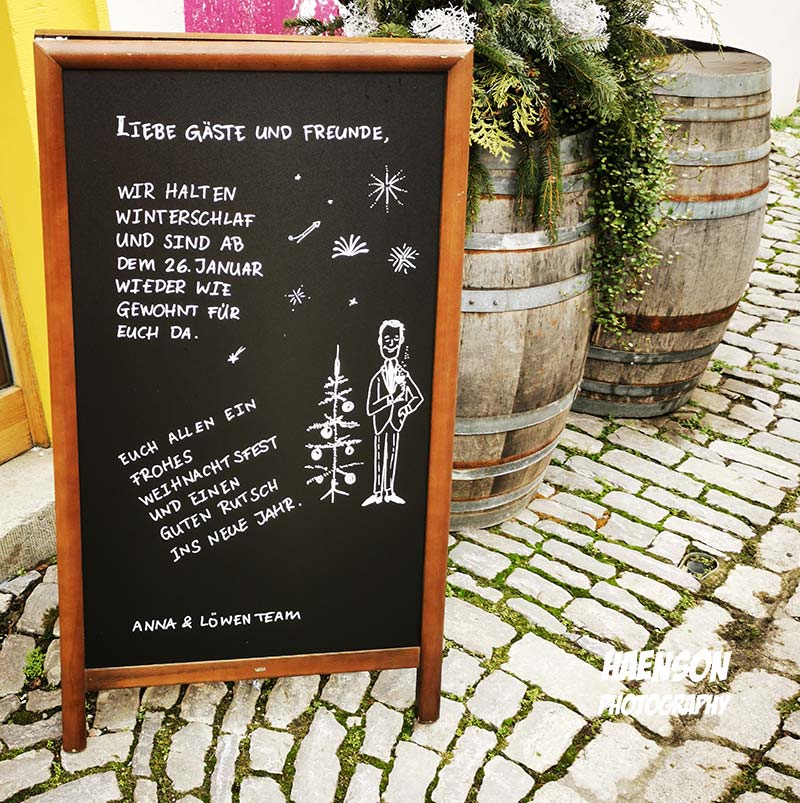 LIEBE GÄSTE UND FREUNDE,
WIR HALTEN
WINTERSCHLAF
UND SIND AB
DEM 26. JANUAR
WIEDER WIE
GEWOHNT FÜR
EUCH DA.
EUCH ALLEN EIN
FROHES
WEIHNACHTSFEST
UND EINEN
GUTEN RUTSCH
INS NEUE JAHR.
ANNA & LÖWEN TEAM
HAENSON
PHOTOGRAPHY